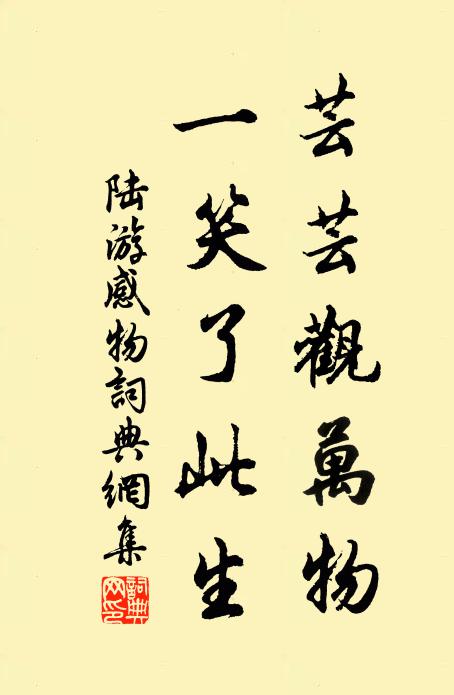 芸芸觀萬物
一笑了此生
陸游感物詞典網集
詞典網印